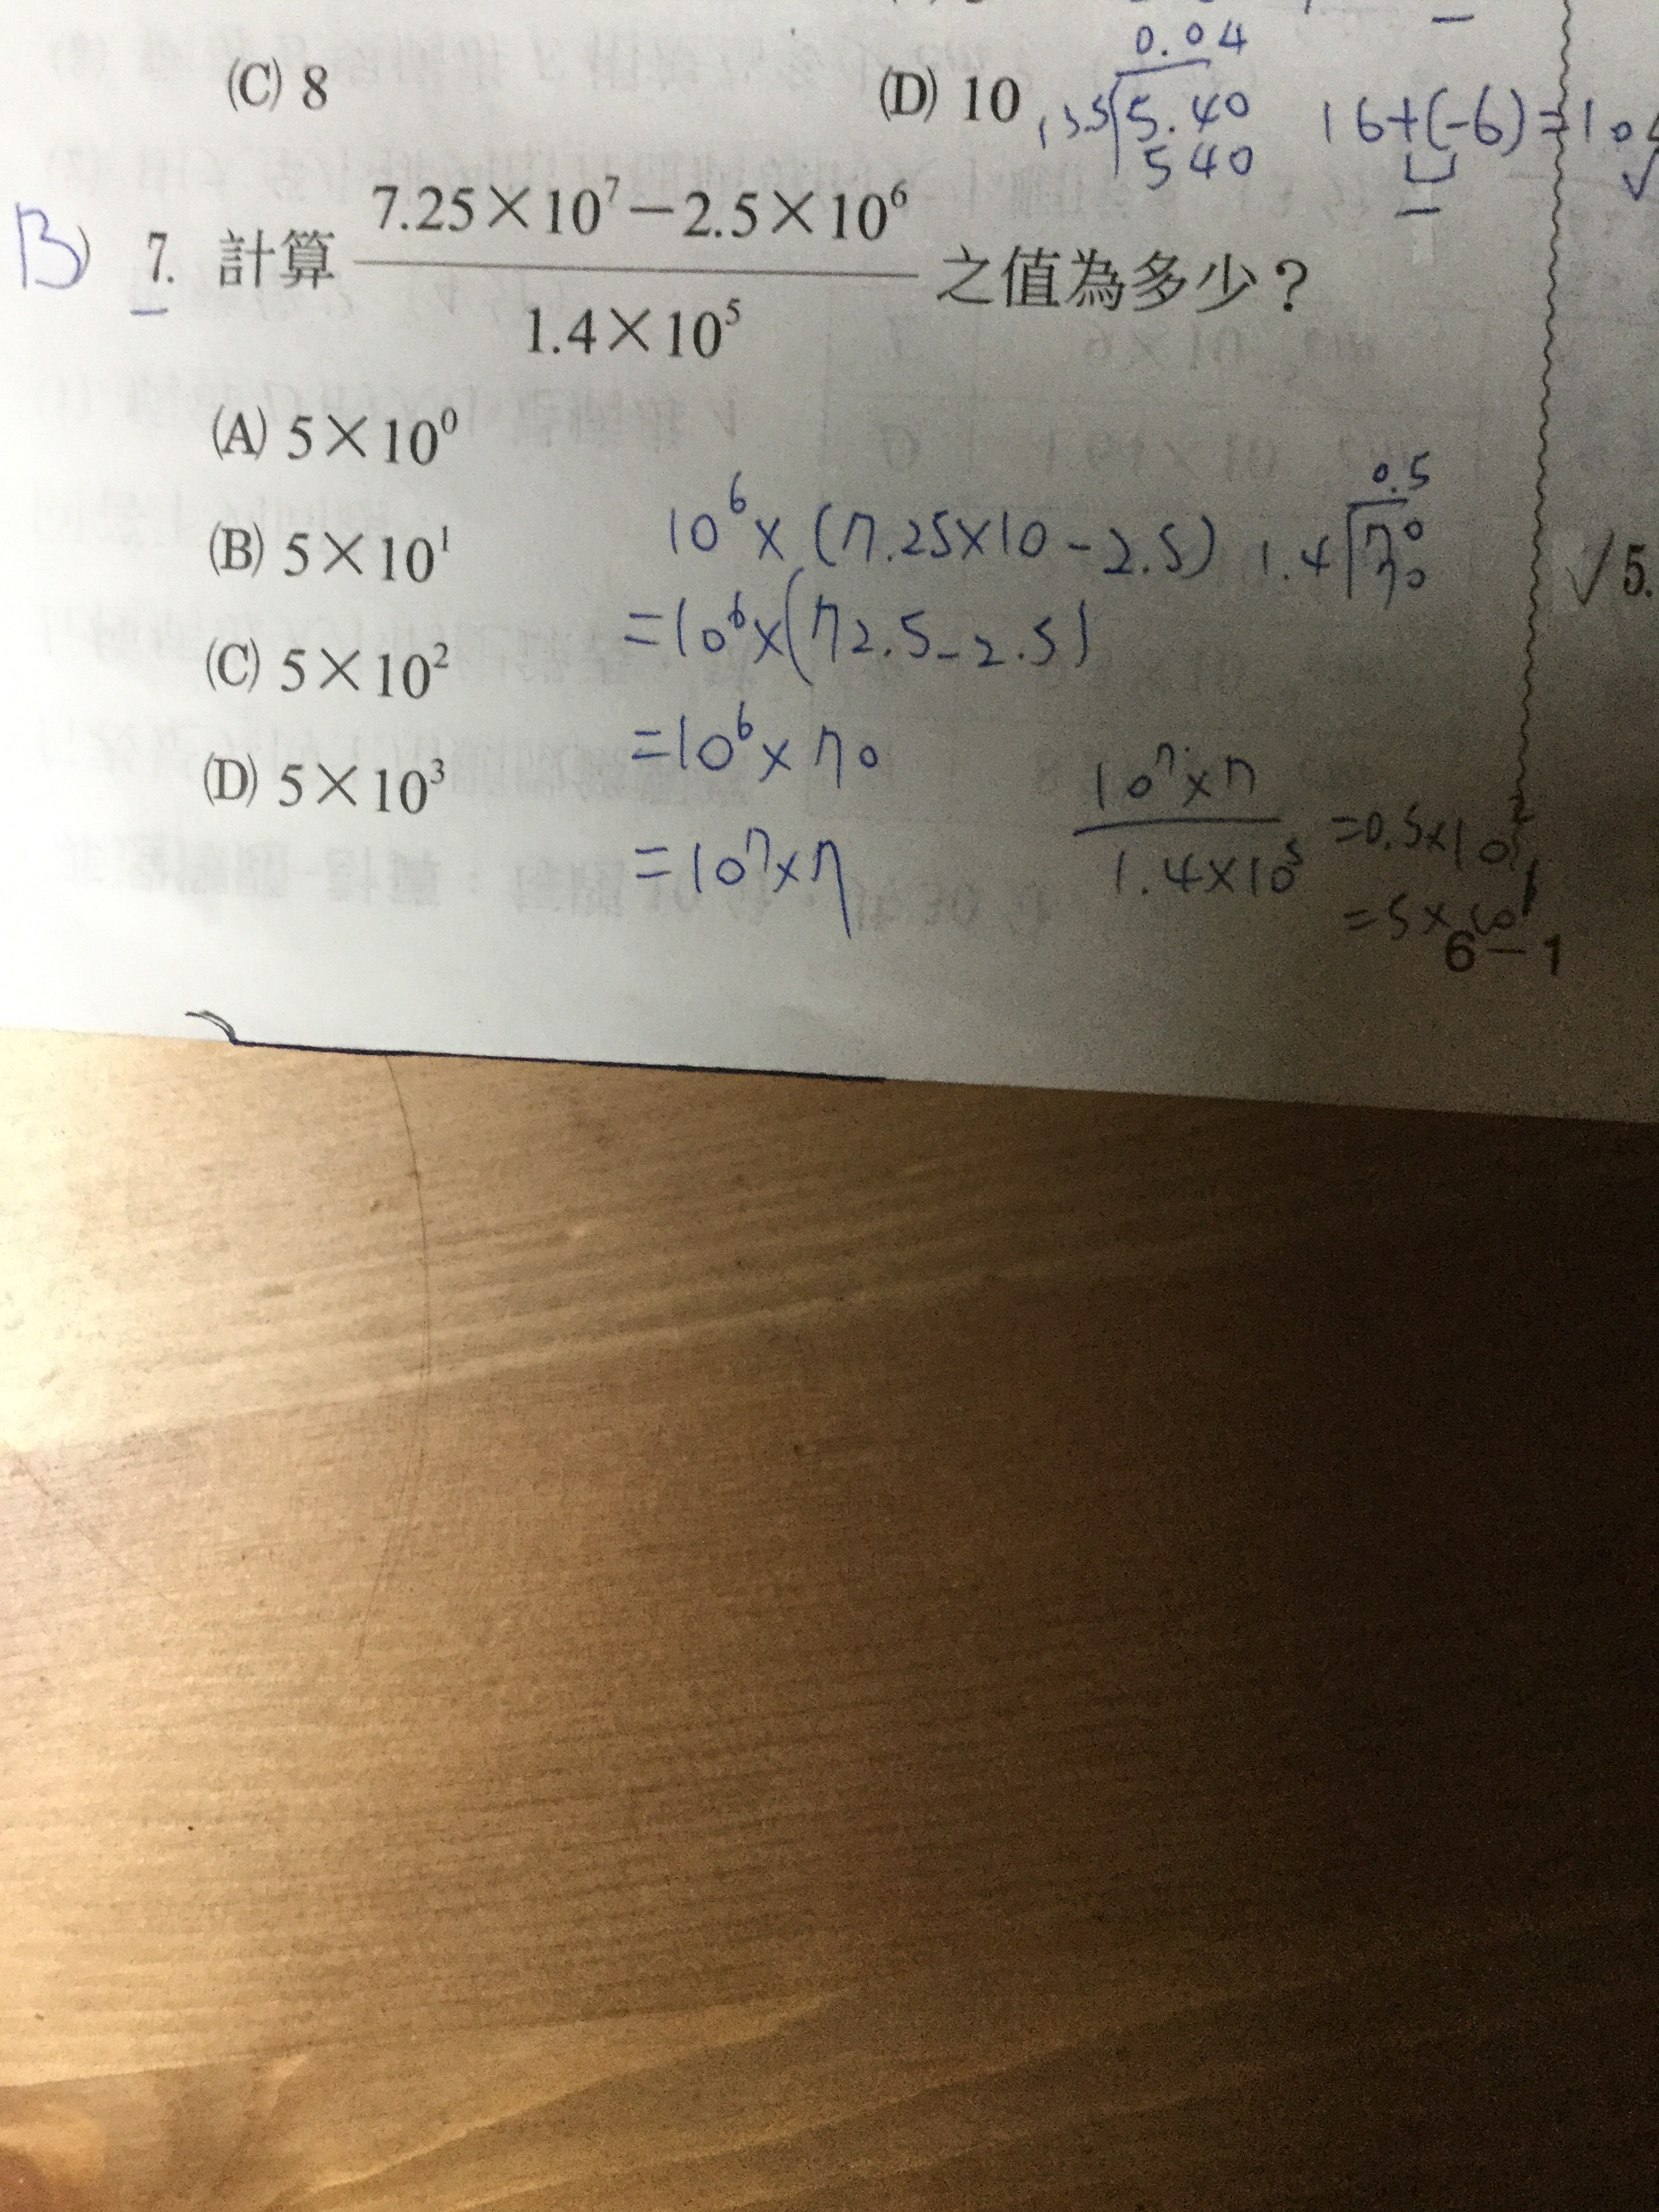 (C) 8
(D) 10
0.04
135 5.40
540
16+(-6)=10
B) 7. 計算 7.25×10⁷−2.5×10⁶ 之值為多少？
1.4×10⁵
(A) 5×10⁰
(B) 5×10¹
(C) 5×10²
(D) 5×10³
10⁶×(7.25×10-2.5)
=10⁶×(72.5-2.5)
=10⁶×70
=10⁷×7
0.5
1.4 7.0
70
10⁷×7
1.4×10⁵
=0.5×10²
=5×10¹
√5.
6－1